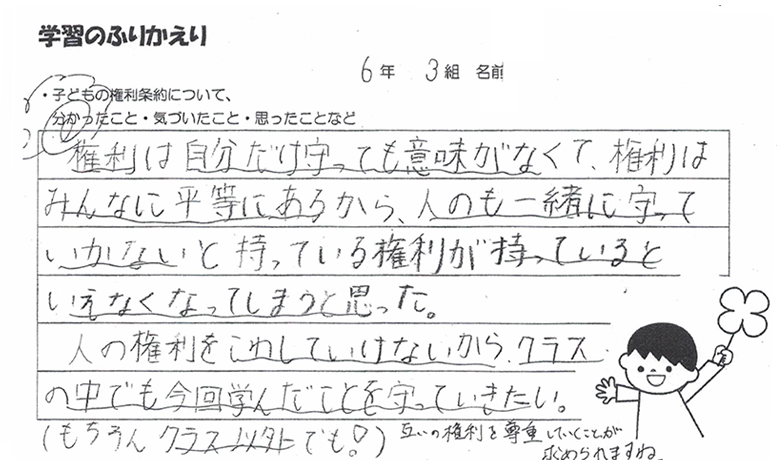 学習のふりかえり
6年 3組 名前
・子どもの権利条約について、
分かったこと・気づいたこと・思ったことなど
権利は自分だけ守っても意味がなくて、権利は
みんなに平等にあるから、人のも一緒に守って
いかないと持っている権利が持っていると
いえなくなってしまうと思った。
人の権利をこわしていけないから、クラス
の中でも今回学んだことを守っていきたい。
(もちろんクラス以外でも!)
互いの権利を尊重していくことが
求められますね。